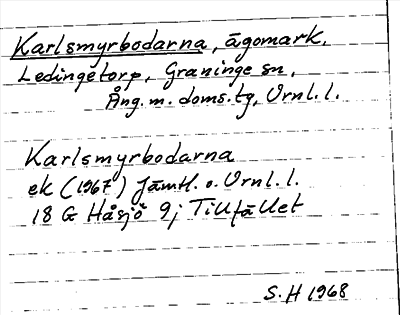 Karlsmyrbodarna, ägomark,
Ledingetorp, Graninge sn,
Ång. m. doms.tg, Vrnl. l.
Karlsmyrbodarna
ek (1967) Jämtl. o. Vrnl. l.
18 G Håsjö 9j Tillfället
S. H 1968